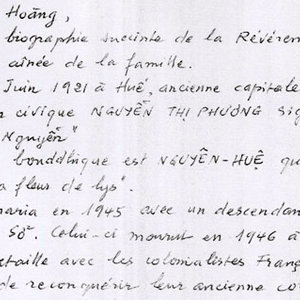 Hoàng,
biographie succinte de la Révéren
aînée de la famille.
Juin 1921 à Huê, ancienne capitale
civique NGUYỄN THỊ PHƯƠNG Sig
Nguyễn"
bonddhique est NGUYÊN-HUỆ qu
a fleur de lys".
maria en 1945 avec un descendan
Sô. Celui-ci mourut en 1946 à
etaille avec les colonialistes Franç
de reconquérir leur ancienne co